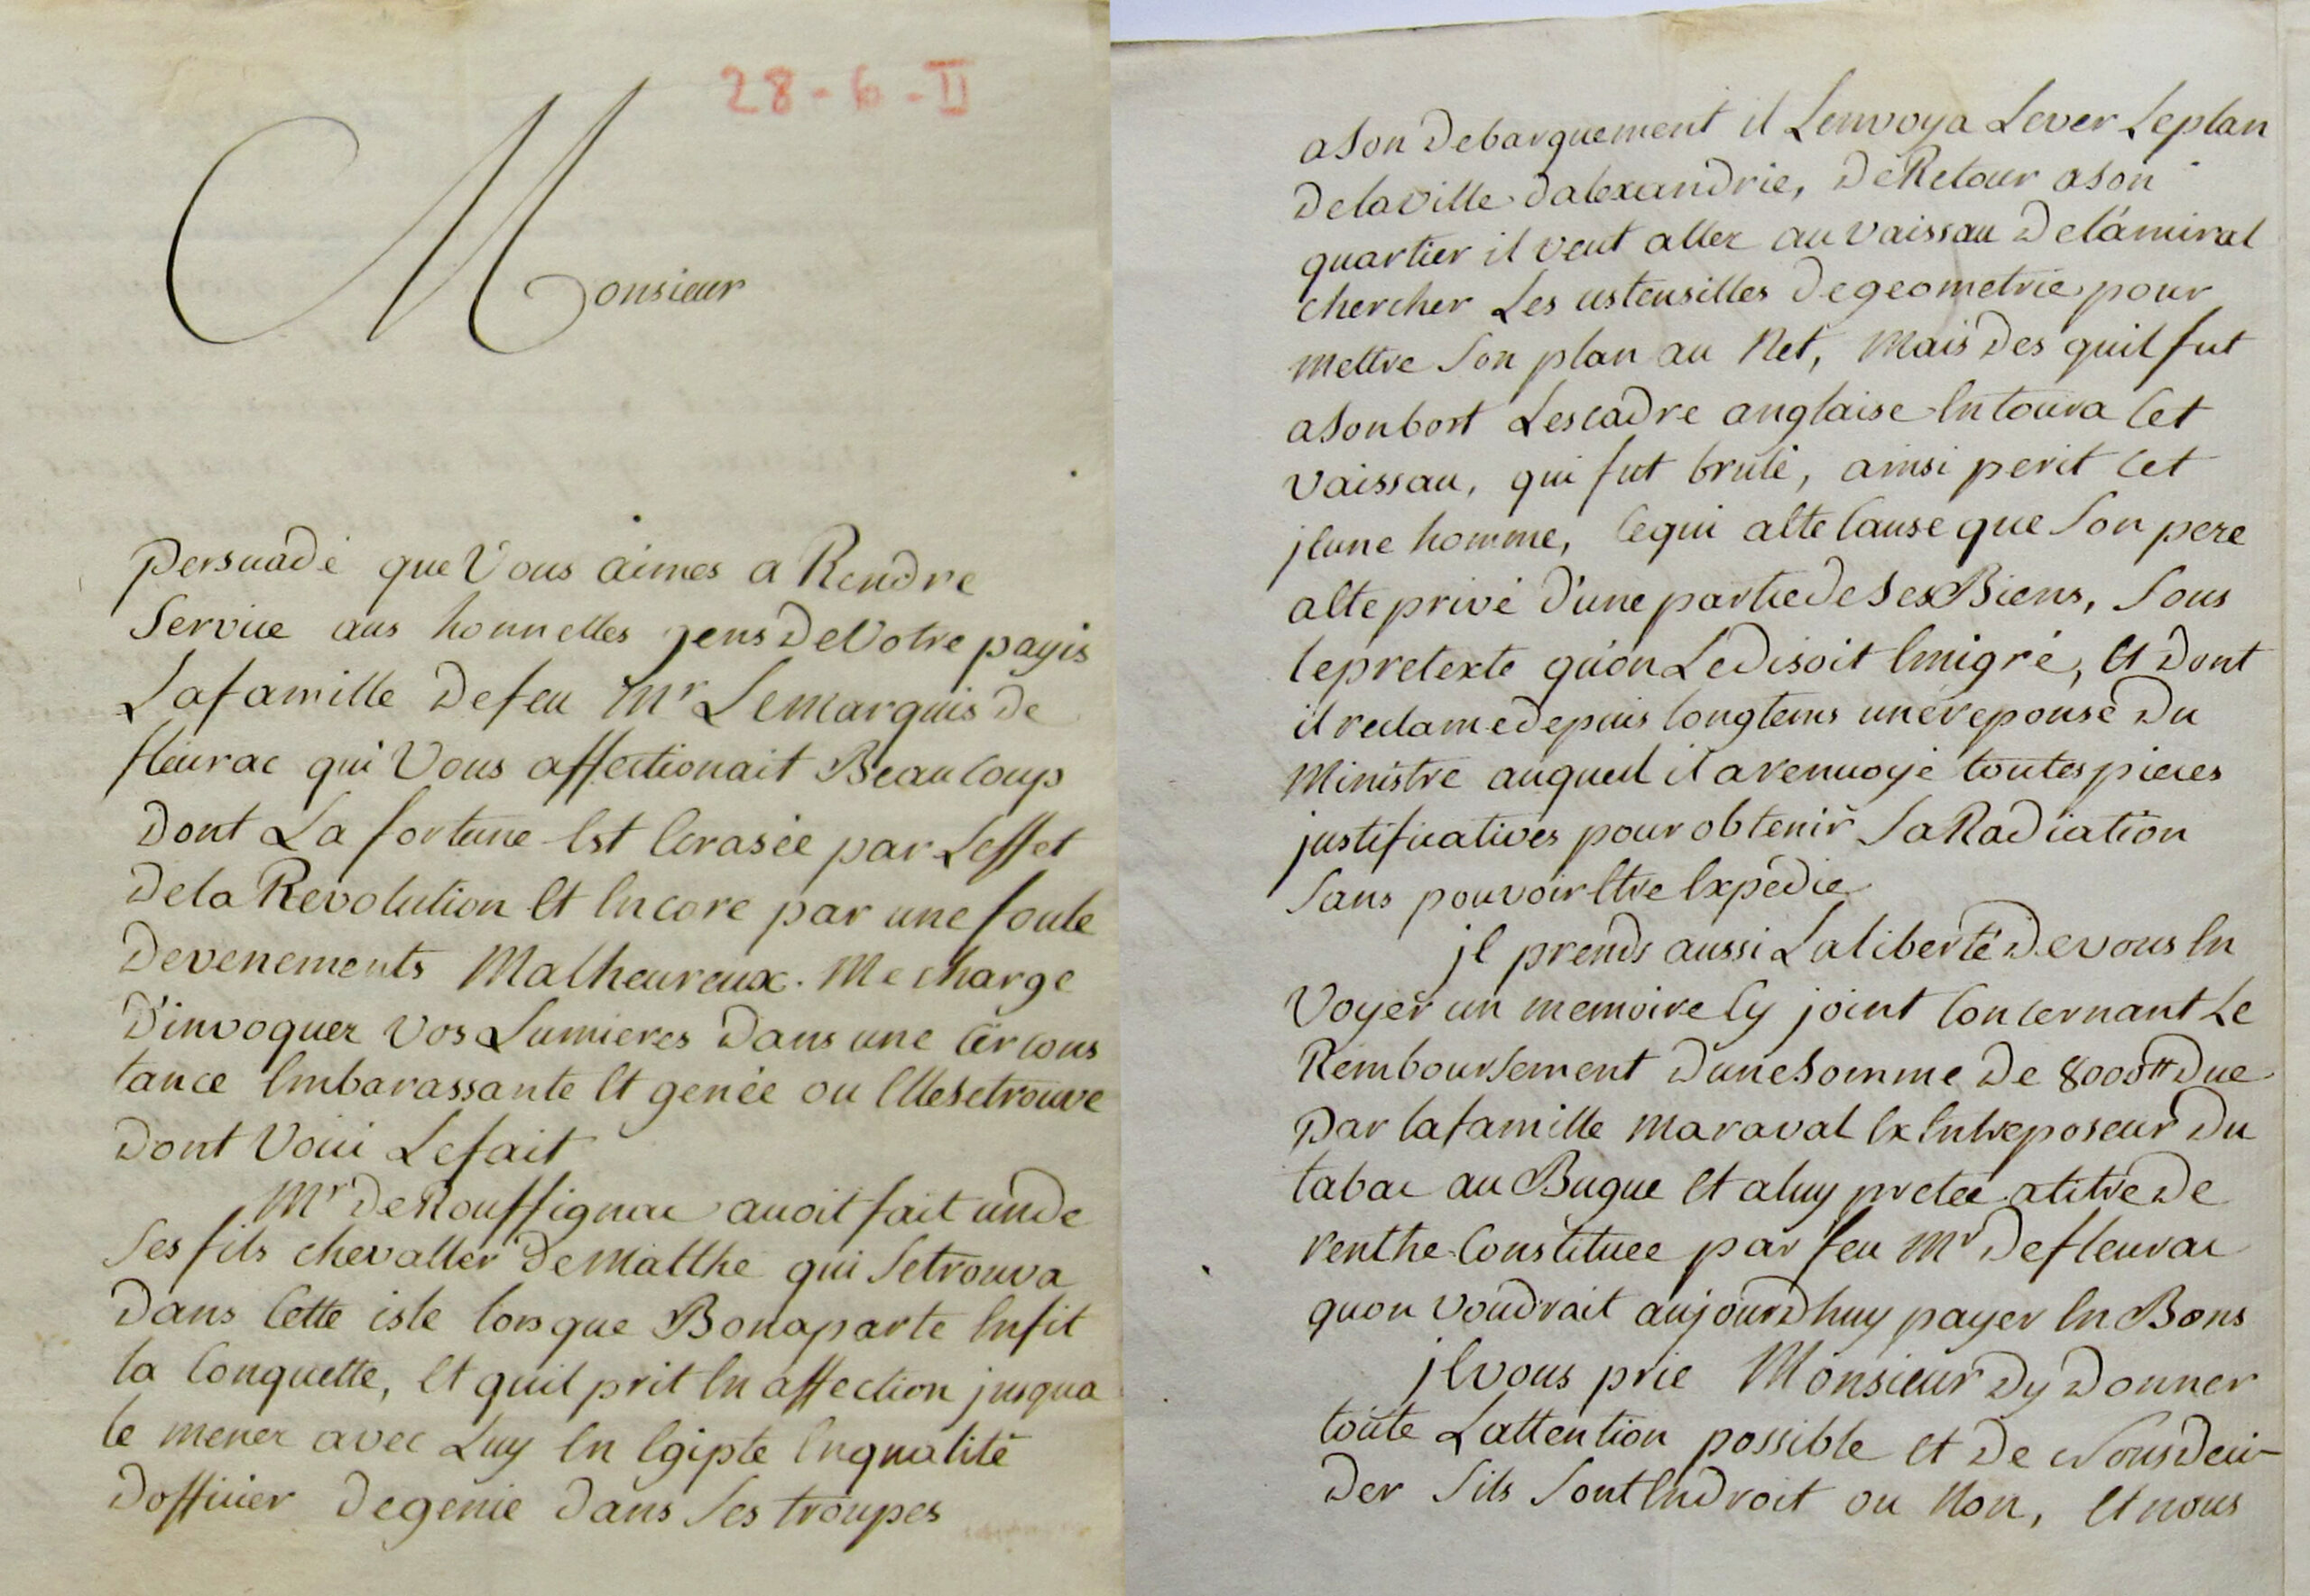 28-6-II
Monsieur
persuadé que Vous aimes a Rendre
Service aus honnettes gens De Votre payis
La famille De feu Mr Le Marquis de
fleurac qui Vous affectionait Beaucoup
Dont La fortune Est Ecrasée par Leffet
De la Revolution Et Encore par une foule
Devenements Malheureux. Me charge
D'invoquer Vos Lumieres Dans une Circons
tance Embarassante Et genée ou Elle se trouve
Dont Voici Le fait
Mr De Rouffignac avoit fait un de
Ses fils chevallier De Matthe qui Se trouva
Dans Cette isle lors que Bonaparte En fit
la Conquette, Et quil prit En affection jusqua
le mener avec Luy En Egipte En qualité
Dofficier De genie Dans Ses troupes
a Son Debarquement il Lenvoya Lever Le plan
De la ville dalexandrie, De Retour a Son
quartier il veut aller au vaissau De l'amiral
chercher Les ustensilles De geometrie pour
mettre Son plan au Net, Mais Des quil fut
a Son bort Lescadre anglaise Entoura Cet
vaissau, qui fut brulé, ainsi perit Cet
jeune homme, Ce qui a Ete Cause que Son pere
a Ete privé D'une partie de Ses Biens, Sous
le pretexte qu'on Le Disoit Emigré, Et Dont
il reclame depuis longtems une reponse Du
Ministre auquel il a renvoyé toutes pieces
justificatives pour obtenir Sa Radiation
Sans pouvoir Etre Expedié
je prends aussi La liberté De vous En
Voyer un memoire Cy joint Concernant Le
Remboursement Dune Somme De 8000# Due
Par la famille Maraval Ex Entreposeur Du
tabac au Bugue Et a luy pretée a titre De
renthe Constituee par feu Mr De fleurac
quon voudrait aujourdhuy payer En Bons
je vous prie Monsieur Dy Donner
toute Lattention possible Et De Nous Deci-
Der Sils Sont En Droit ou Non, Et nous